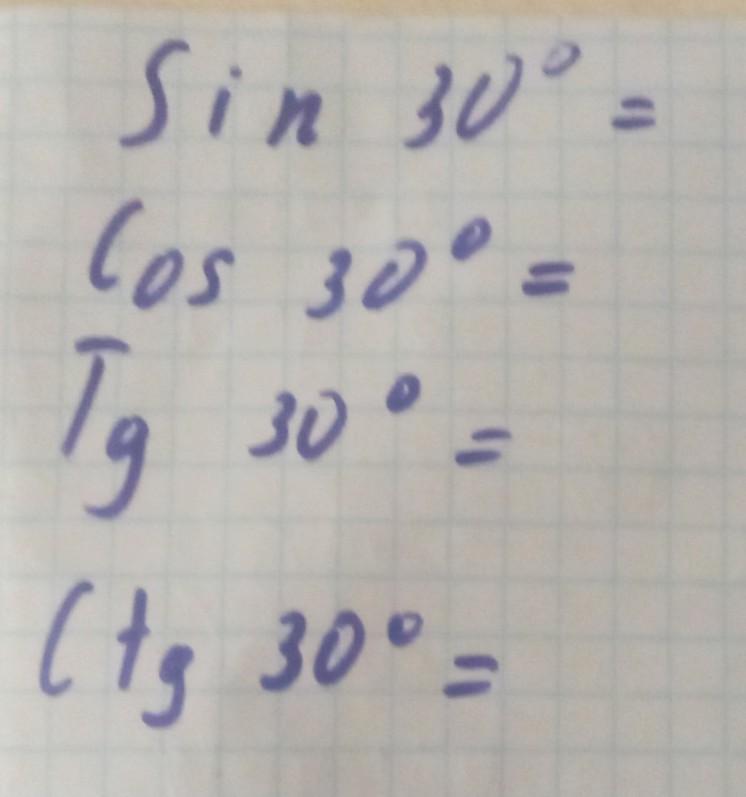 Sin 30° =
Cos 30° =
Tg 30° =
Ctg 30° =